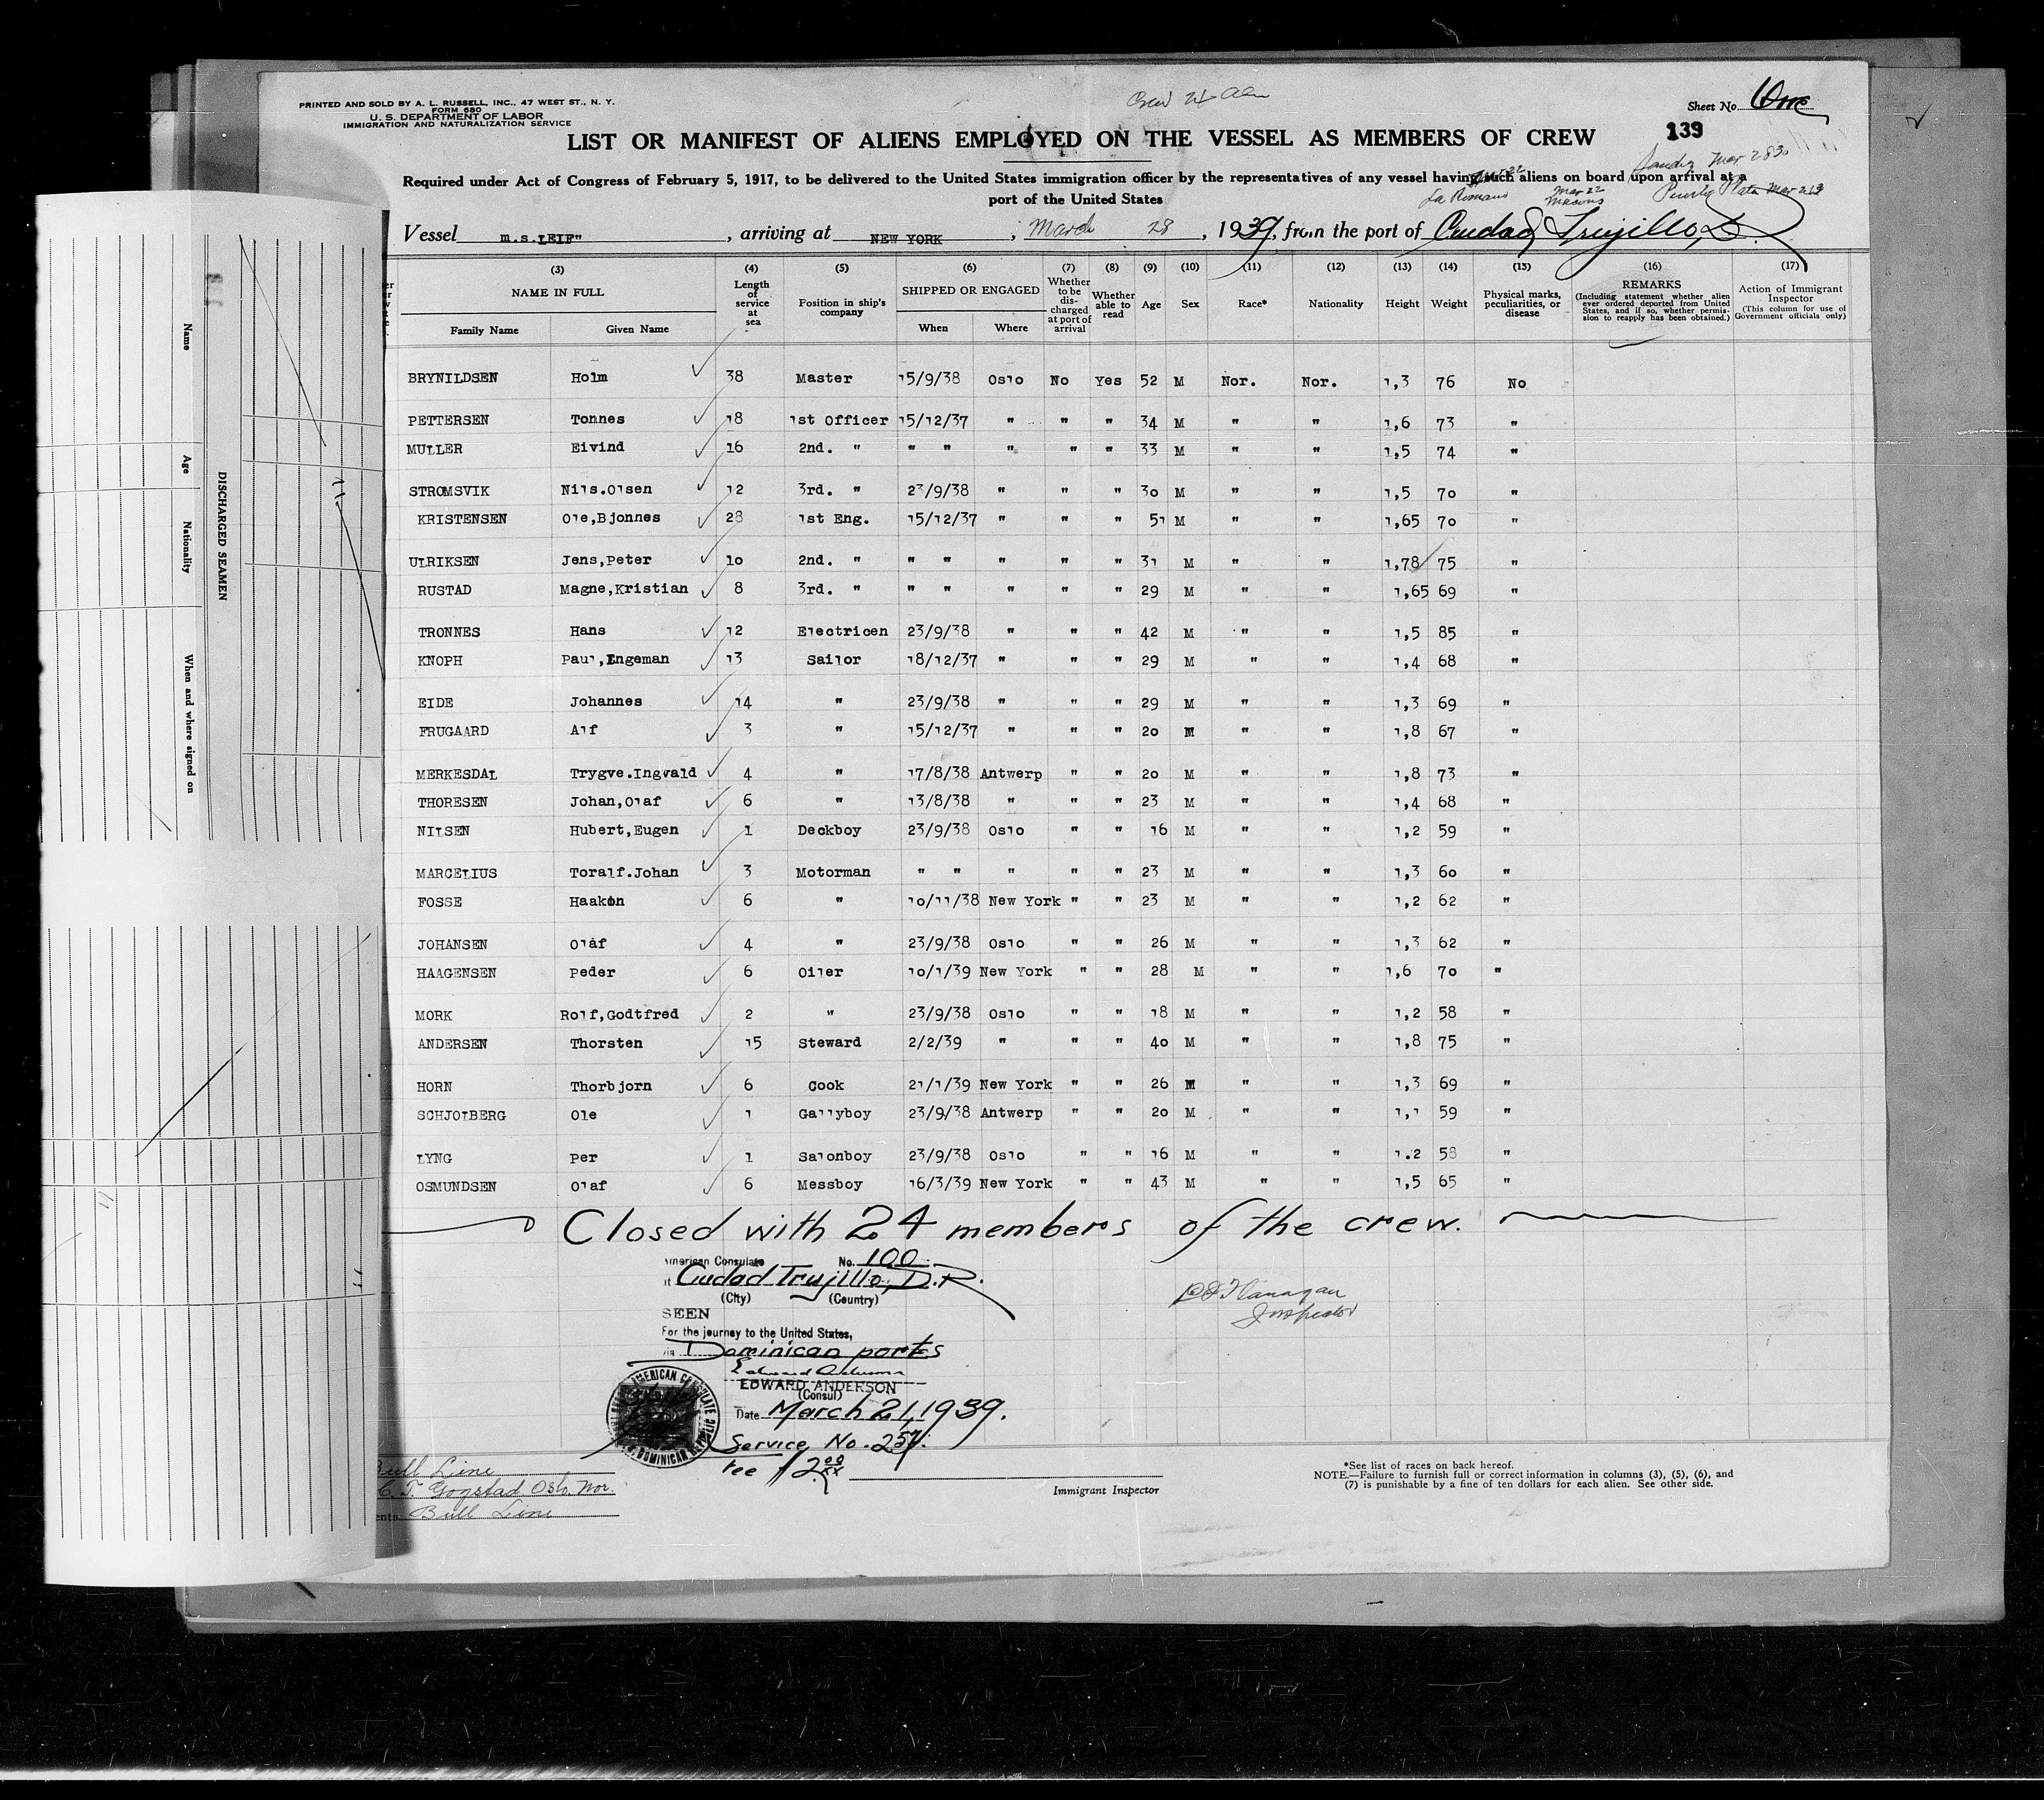 PRINTED AND SOLD BY A. L. RUSSELL, INC., 47 WEST ST., N. Y.
FORM 680
U. S. DEPARTMENT OF LABOR
IMMIGRATION AND NATURALIZATION SERVICE
Sheet No. One
139
LIST OR MANIFEST OF ALIENS EMPLOYED ON THE VESSEL AS MEMBERS OF CREW
Required under Act of Congress of February 5, 1917, to be delivered to the United States immigration officer by the representatives of any vessel having such aliens on board upon arrival at a
port of the United States
La Romana Mar 22
Vessel m.s.LEIF" , arriving at NEW YORK , March 28 , 1939, from the port of Ciudad Trujillo, D.
(3) (4) (5) (6) (7) (8) (9) (10) (11) (12) (13) (14) (15) (16) (17)
NAME IN FULL
Family Name Given Name
Length of service at sea
Position in ship's company
SHIPPED OR ENGAGED
When Where
Whether to be discharged at port of arrival
Whether able to read
Age Sex Race* Nationality Height Weight
Physical marks, peculiarities, or disease
REMARKS
(Including statement whether alien ever ordered deported from United States, and if so, whether permission to reapply has been obtained.)
Action of Immigrant Inspector
(This column for use of Government officials only)
BRYNILDSEN Holm 38 Master 15/9/38 Oslo No Yes 52 M Nor. Nor. 1,3 76 No
PETTERSEN Tonnes 18 1st Officer 15/12/37 " " " 34 M " " 1,6 73 "
MULLER Eivind 16 2nd. " " " " " " 33 M " " 1,5 74 "
STROMSVIK Nils.Olsen 12 3rd. " 23/9/38 " " " 30 M " " 1,5 70 "
KRISTENSEN Ole,Bjonnes 28 1st Eng. 15/12/37 " " " 51 M " " 1,65 70 "
ULRIKSEN Jens,Peter 10 2nd. " " " " " " 31 M " " 1,78 75 "
RUSTAD Magne,Kristian 8 3rd. " " " " " " 29 M " " 1,65 69 "
TRONNES Hans 12 Electricen 23/9/38 " " " 42 M " " 1,5 85 "
KNOPH Paul,Engeman 13 Sailor 18/12/37 " " " 29 M " " 1,4 68 "
EIDE Johannes 14 " 23/9/38 " " " 29 M " " 1,3 69 "
FRUGAARD Alf 3 " 15/12/37 " " " 20 M " " 1,8 67 "
MERKESDAL Trygve.Ingvald 4 " 17/8/38 Antwerp " " 20 M " " 1,8 73 "
THORESEN Johan,Olaf 6 " 13/8/38 " " " 23 M " " 1,4 68 "
NILSEN Hubert,Eugen 1 Deckboy 23/9/38 Oslo " " 16 M " " 1,2 59 "
MARCELIUS Toralf.Johan 3 Motorman " " " " " 23 M " " 1,3 60 "
FOSSE Haakon 6 " 10/11/38 New York " " 23 M " " 1,2 62 "
JOHANSEN Olaf 4 " 23/9/38 Oslo " " 26 M " " 1,3 62 "
HAAGENSEN Peder 6 Oiler 10/1/39 New York " " 28 M " " 1,6 70 "
MORK Rolf,Godtfred 2 " 23/9/38 Oslo " " 18 M " " 1,2 58 "
ANDERSEN Thorsten 15 Steward 2/2/39 " " " 40 M " " 1,8 75 "
HORN Thorbjorn 6 Cook 21/1/39 New York " " 26 M " " 1,3 69 "
SCHJOLBERG Ole 1 Gallyboy 23/9/38 Antwerp " " 20 M " " 1,1 59 "
LYNG Per 1 Salonboy 23/9/38 Oslo " " 16 M " " 1.2 58 "
OSMUNDSEN Olaf 6 Messboy 16/3/39 New York " " 43 M " " 1,5 65 "
Closed with 24 members of the crew.
American Consulate No. 100
at Ciudad Trujillo, D.R.
(City) (Country)
SEEN
For the journey to the United States,
via Dominican ports
Edward Anderson
EDWARD ANDERSON
(Consul)
Date March 21, 1939.
Service No. 257.
Fee $2.00
Flanagan
Inspector
Bull Line
Gogstad Oslo. Nor.
Bull Line
Immigrant Inspector
*See list of races on back hereof.
NOTE.—Failure to furnish full or correct information in columns (3), (5), (6), and
(7) is punishable by a fine of ten dollars for each alien. See other side.
DISCHARGED SEAMEN
Name
Age
Nationality
When and where signed on